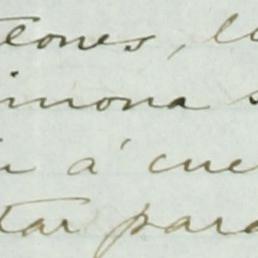 tones, lu
imona s
a á cue
tar para